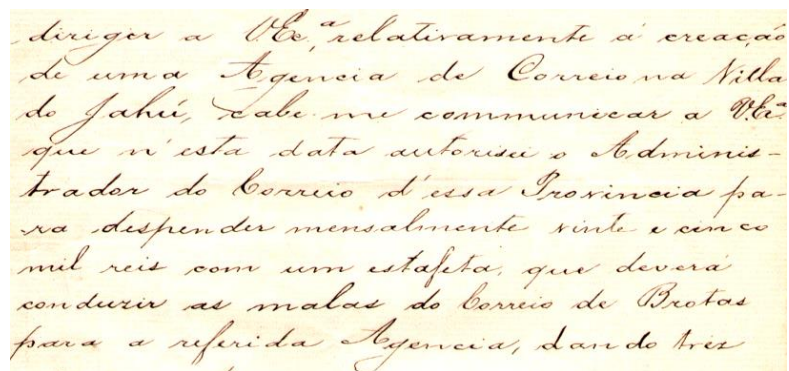 diriger a V.Ex.ª, relativamente á creação
de uma Agencia de Correio na Villa
do Jahú, cabe-me communicar a V.Ex.ª
que n'esta data autorisei o Adminis-
trador do Correio d'essa Provincia pa-
ra despender mensalmente vinte e cinco
mil reis com um estafeta, que deverá
conduzir as malas do Correio de Brotas
para a referida Agencia, dando trez